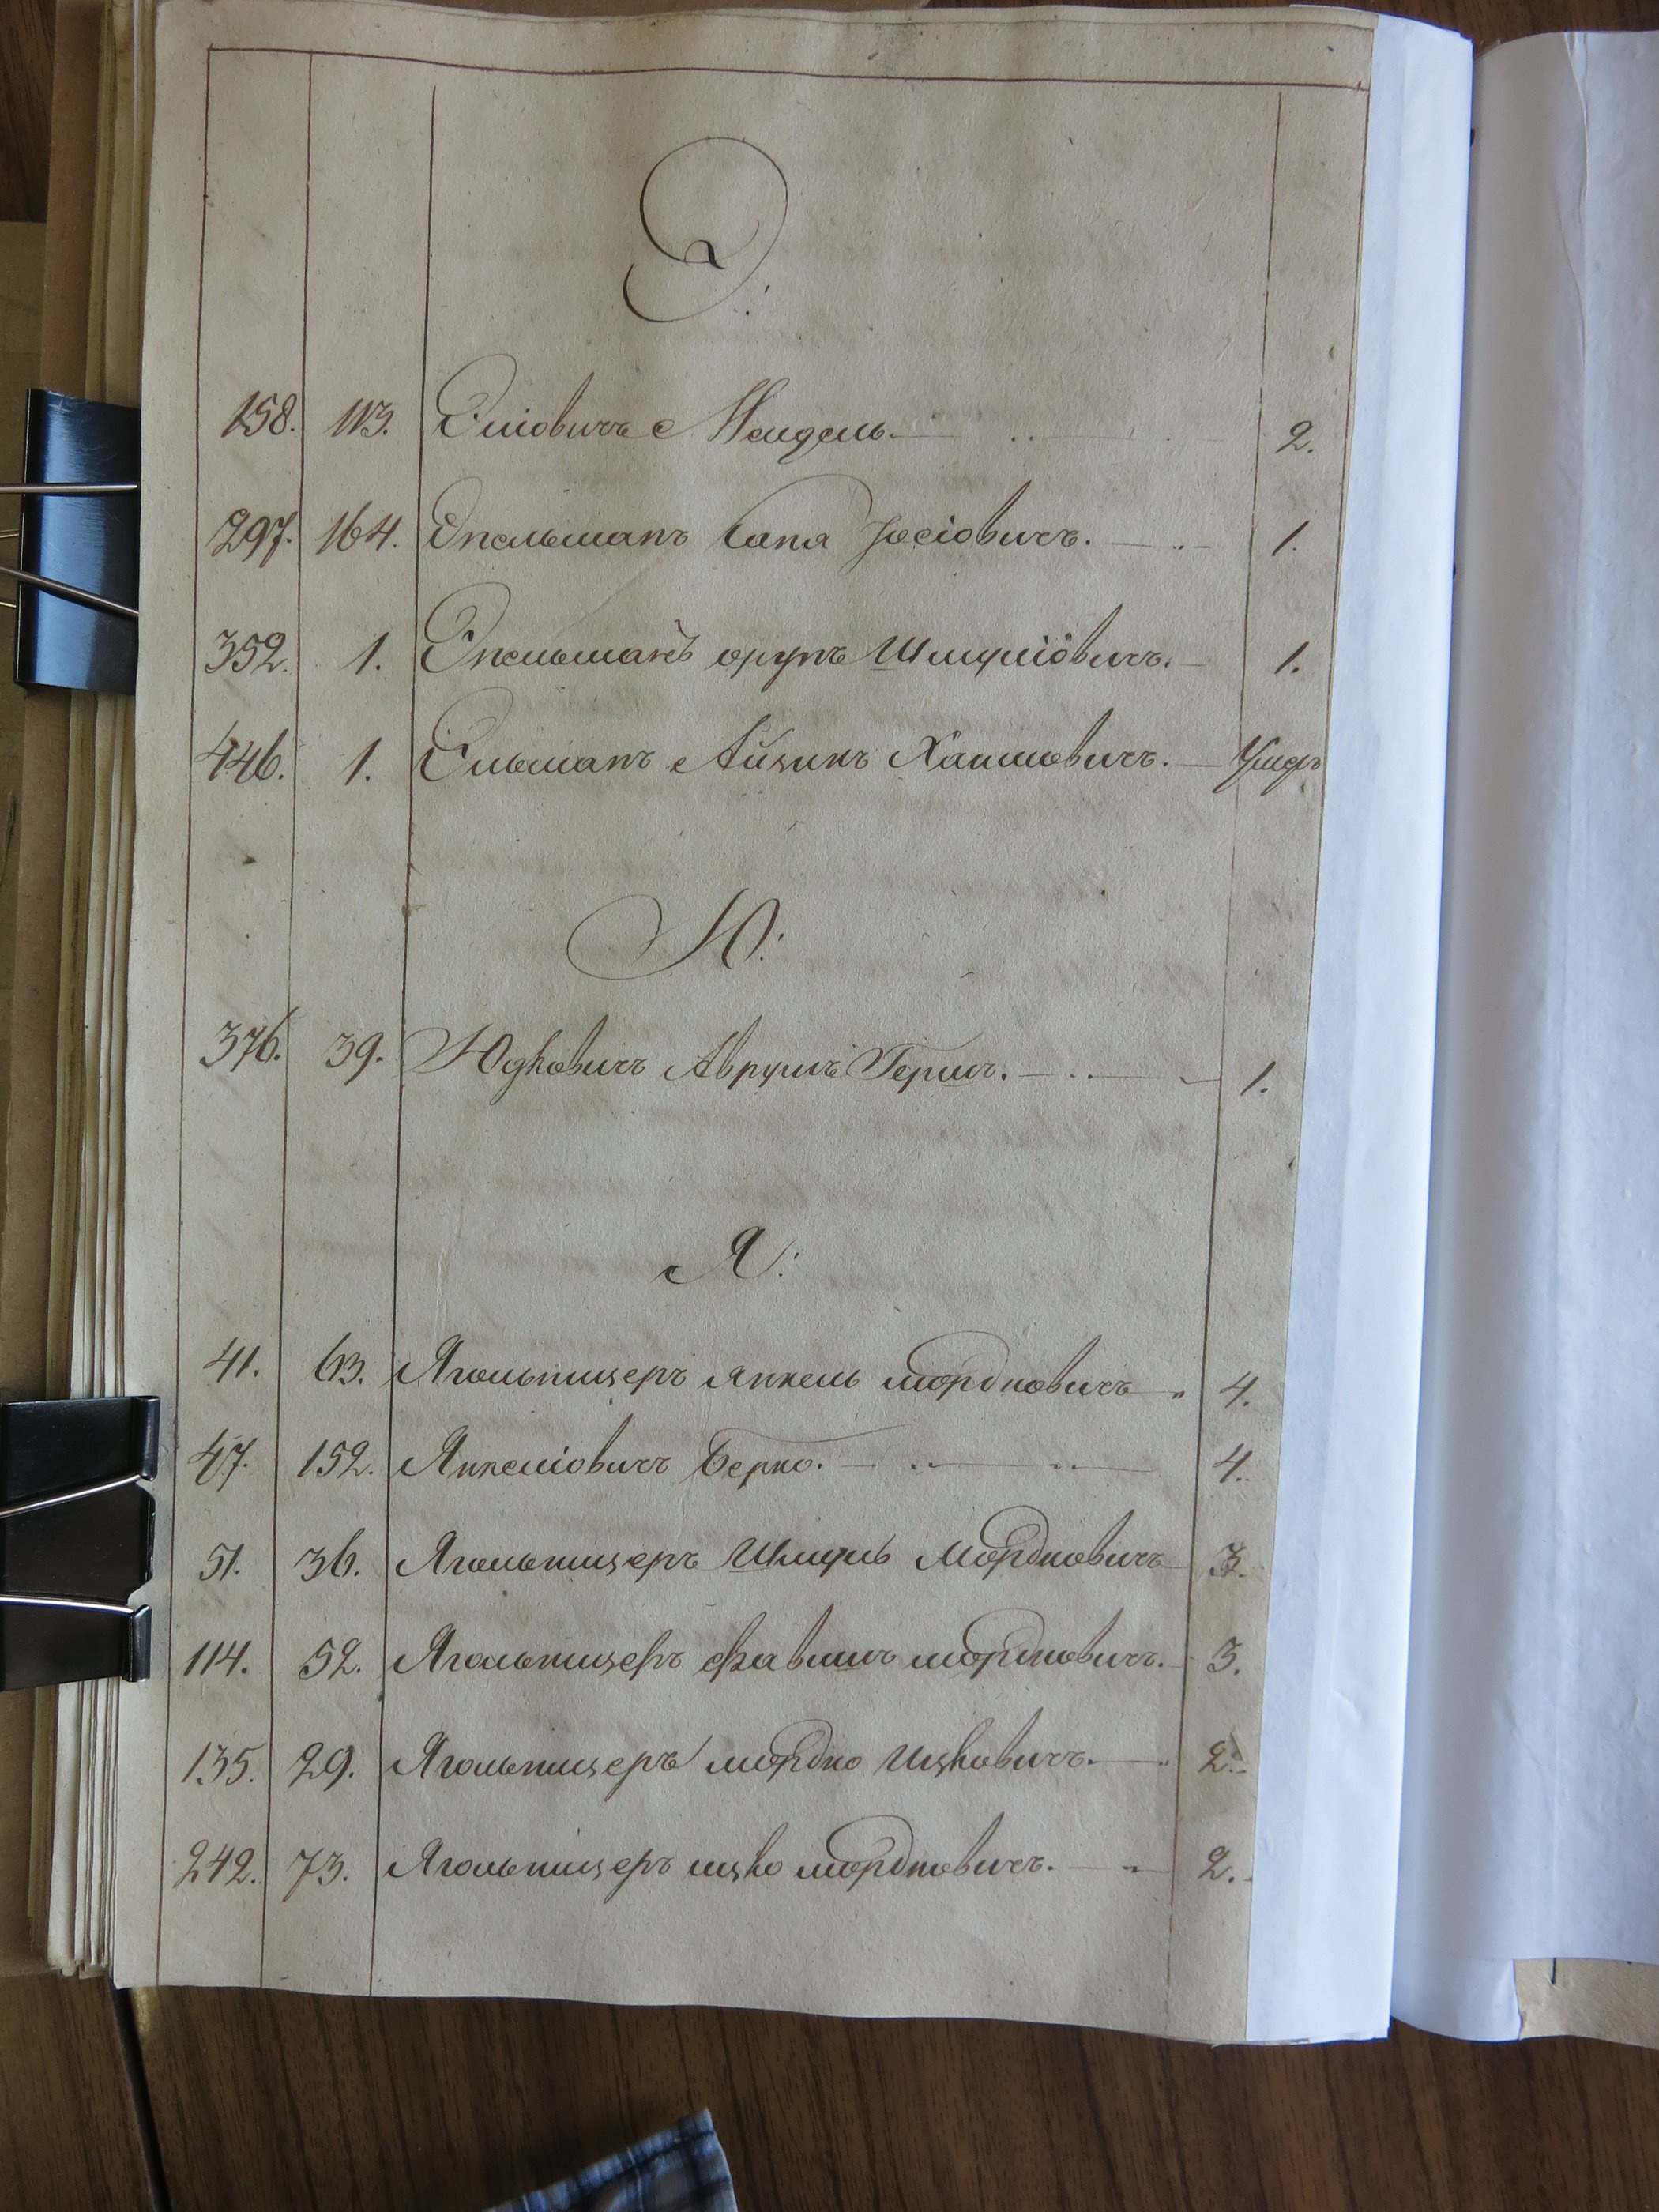 Э:
158. 113. Эліовичъ Мендель. 2.
297. 164. Энгельманъ Сапя Іосіовичъ. 1.
352. 1. Энгельманъ Сруль Шмуліовичъ. 1.
446. 1. Эльманъ Айзикъ Хаимовичъ. Умеръ
Ю:
376. 39. Юдковичъ Аврумъ Герш. 1.
Я:
41. 63. Ягольницеръ Янкель Мордковичъ 4.
47. 152. Янкеліовичъ Берко. 4.
51. 36. Ягольницеръ Шмуль Мордковичъ 3.
114. 52. Ягольницеръ Мордковичъ. 3.
135. 29. Ягольницеръ Мордко Ицковичъ. 2.
242. 73. Ягольницеръ Ицко Мордковичъ. 2.